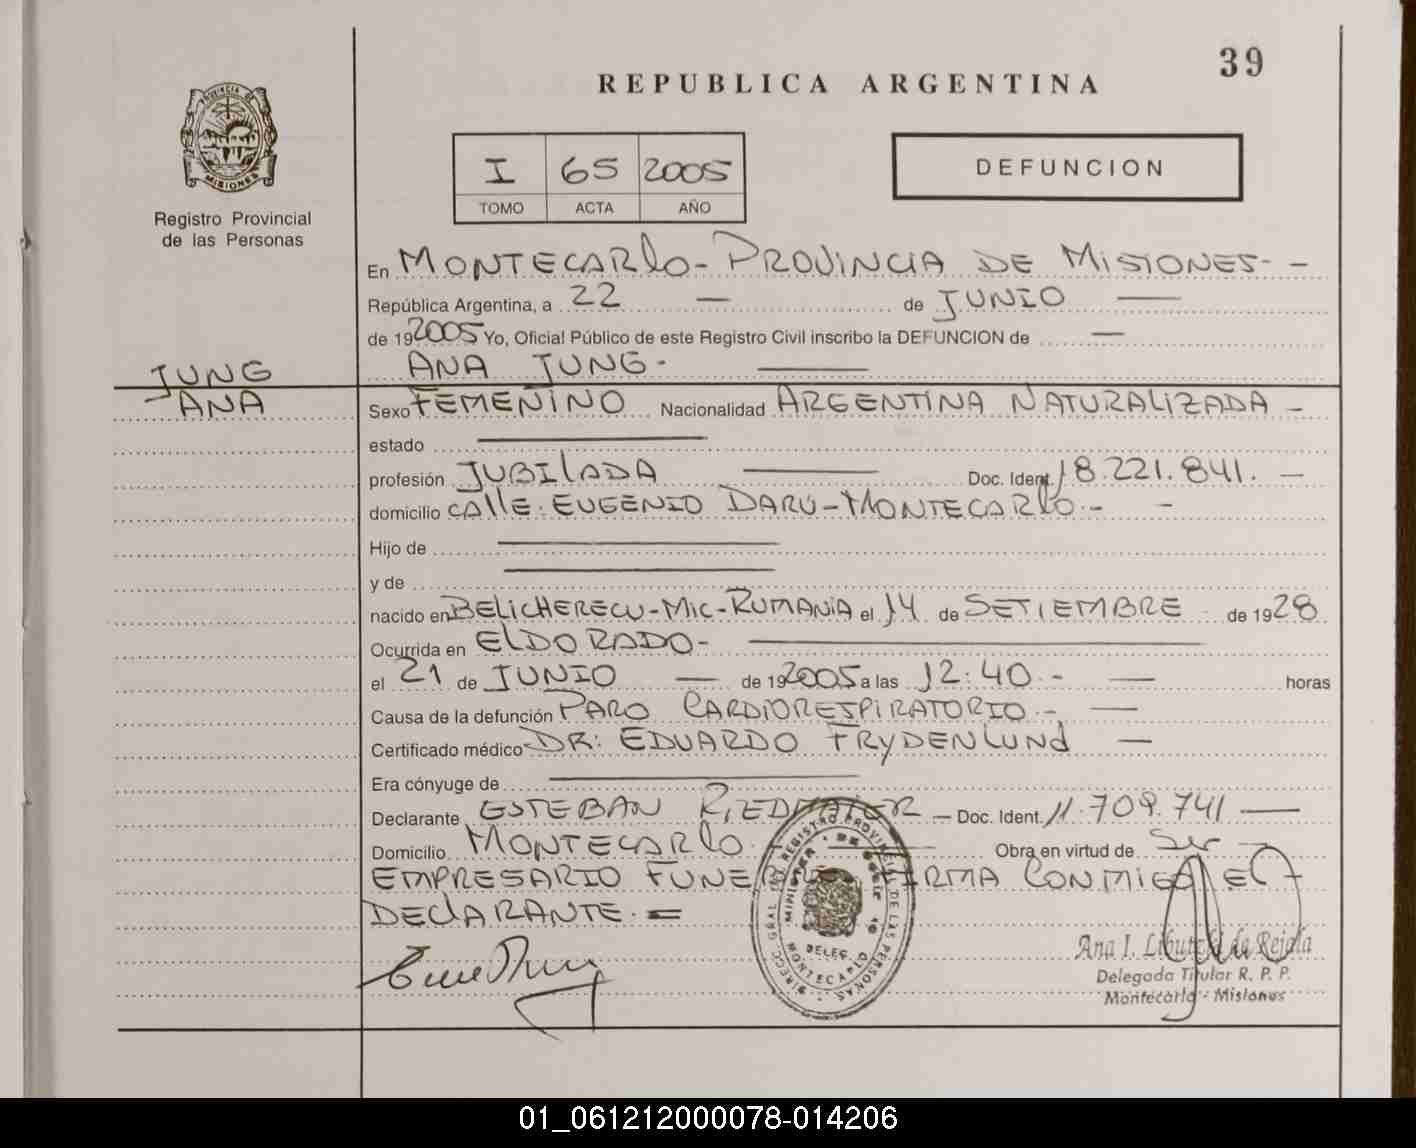 39
REPUBLICA ARGENTINA
I 65 2005
TOMO ACTA AÑO
DEFUNCION
PROVINCIA DE
MISIONES
Registro Provincial
de las Personas
En MONTECARlo - PROVINCIA DE MISIONES - -
República Argentina, a 22 — de JUNIO —
de 192005 Yo, Oficial Público de este Registro Civil inscribo la DEFUNCION de —
ANA JUNG - —
JUNG
ANA
Sexo FEMENINO Nacionalidad ARGENTINA NATURALIZADA -
estado —
profesión JUBILADA — Doc. Ident. 18.221.841. -
domicilio CAllE: EUGENIO DARÚ - MONTECARlo - -
Hijo de —
y de —
nacido en BELICHERECU-MIC-RUMANIA el 14 de SETIEMBRE de 1928
Ocurrida en ElDORADO - —
el 21 de JUNIO — de 192005 a las 12:40 - — horas
Causa de la defunción PARO CARDIORESPIRATORIO - —
Certificado médico DR: EDUARDO FRYDENLUNd —
Era cónyuge de —
Declarante ESTEBAN — Doc. Ident. 11.709.741 —
Domicilio MONTECARlO Obra en virtud de Ser
EMPRESARIO FIRMA CONMIGO EL
DEClARANTE. =
DIRECC. GRAL. DEL REGISTRO PROVINCIAL DE LAS PERSONAS
DELEG.
MONTECARLO
Ana I. de Rejala
Delegada Titular R. P. P.
Montecarlo - Misiones
01_061212000078-014206